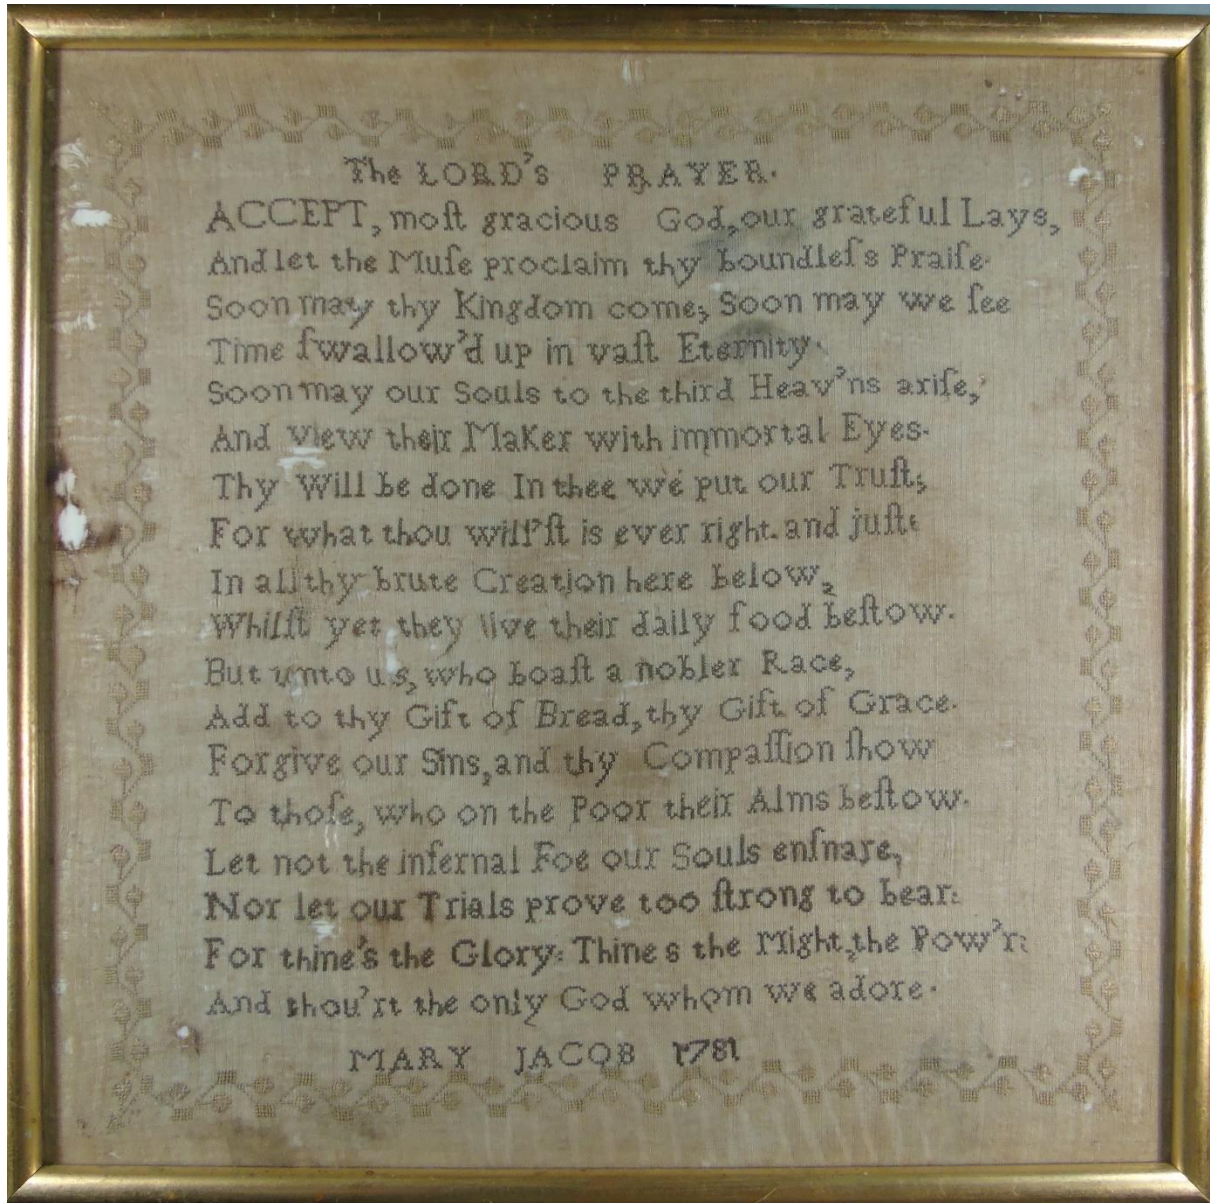 The LORD's PRAYER.
ACCEPT, moſt gracious God, our grateful Lays,
And let the Muſe proclaim thy boundleſs Praiſe.
Soon may thy Kingdom come; Soon may we ſee
Time ſwallow'd up in vaſt Eternity.
Soon may our Souls to the third Heav'ns ariſe,
And view their Maker with immortal Eyes.
Thy Will be done In thee we put our Truſt;
For what thou will'ſt is ever right and juſt:
In all thy brute Creation here below,
Whilſt yet they live their daily food beſtow.
But unto us, who boaſt a nobler Race,
Add to thy Gift of Bread, thy Gift of Grace.
Forgive our Sins, and thy Compaſſion ſhow
To thoſe, who on the Poor their Alms beſtow.
Let not the infernal Foe our Souls enſnare,
Nor let our Trials prove too ſtrong to bear:
For thine's the Glory: Thine s the Might, the Pow'r:
And thou'rt the only God whom we adore.
MARY JACOB 1781